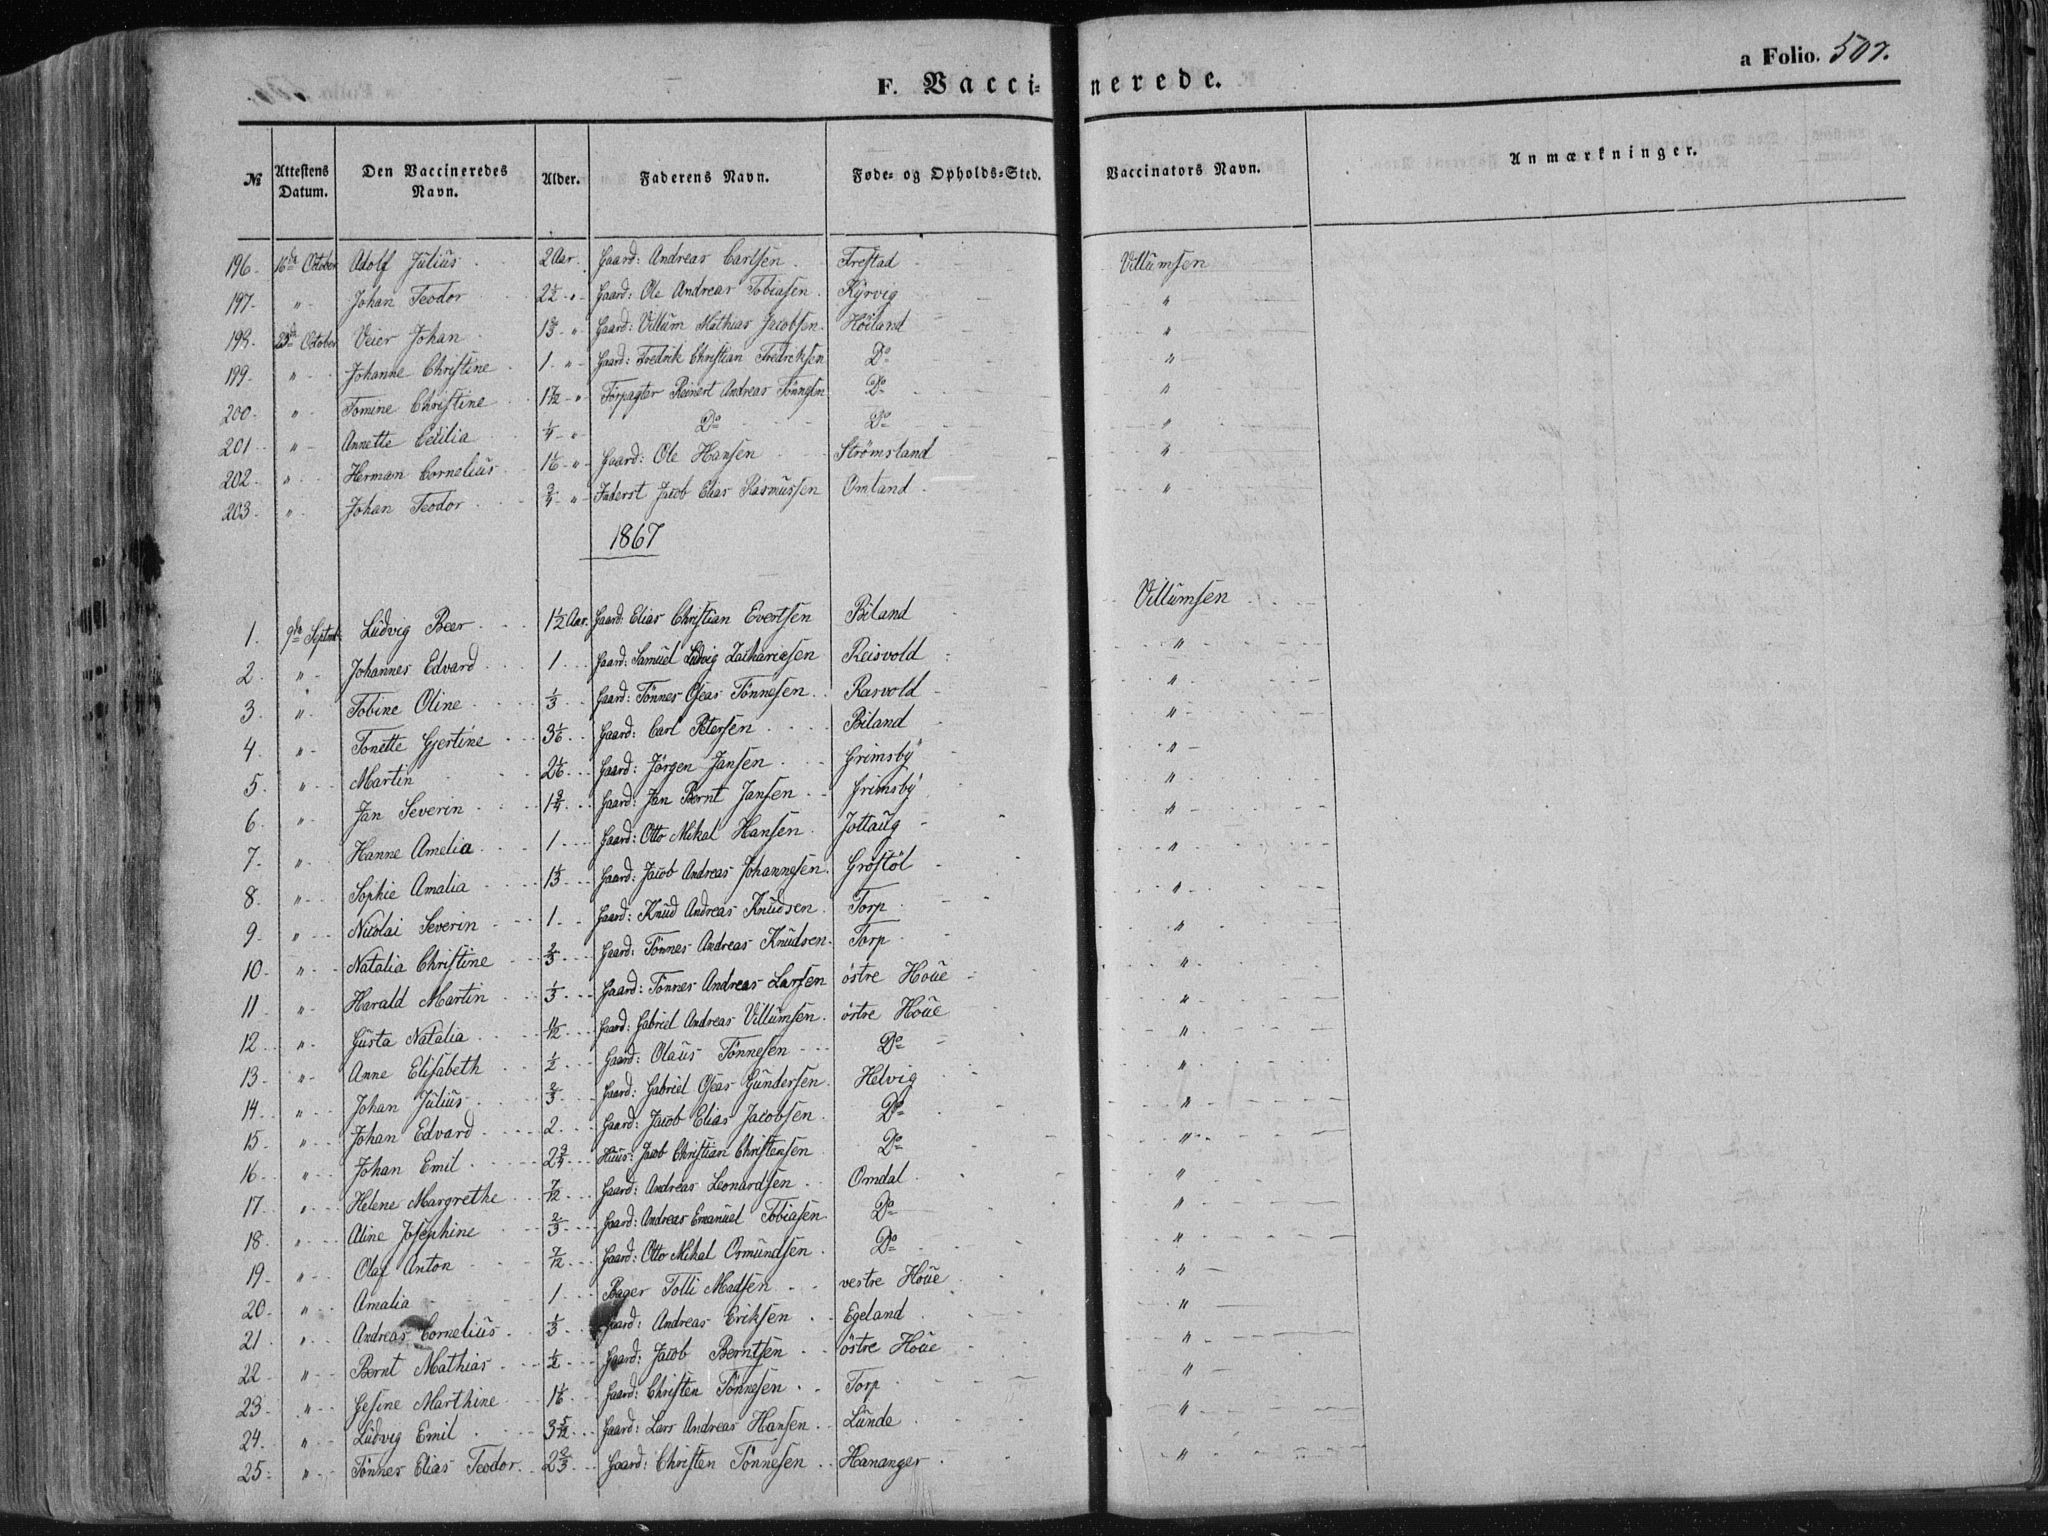 a Folio. 507.
F. Vaccinerede.
№ Attestens Datum. Den Vaccineredes Navn. Alder. Faderens Navn. Føde- og Opholds-Sted. Vaccinators Navn. Anmærkninger.
196. 16de October Adolf Julius 2 Aar. Gaard: Andreas Carlsen Frestad Villumsen
197. " Johan Teodor 2½ " Gaard: Ole Andreas Tobiasen Kyrvig "
198. 23de October Veier Johan 1⅔ " Gaard: Villum Mathias Jacobsen Höiland "
199. " Johanne Christine 1 " Gaard: Fredrik Christian Fredriksen Do "
200. " Tomine Christine 1½ " Forpagter Reinert Andreas Tönnesen Do "
201. " Annette Cecilia ¼ " Do Do "
202. " Herman Cornelius 1⅙ " Gaard: Ole Hansen Strömsland "
203. " Johan Teodor ¾ " Faderst Jacob Elias Rasmussen Omland "
1867
1. 9de Septmb: Ludvig Beer 1½ Aar. Gaard: Elias Christian Evertsen Biland Villumsen
2 " Johannes Edvard 1 Gaard: Samuel Ludvig Zachariasen Reisvold "
3. " Tobine Oline ⅓ Gaard: Tönnes Oseas Tönnesen Rasvold "
4. " Tonette Gjertine 3⅙ Gaard: Carl Petersen Biland "
5. " Martin 2⅙ Gaard: Jörgen Jansen Grimsby "
6. " Jan Severin 1¾ Gaard: Jan Bernt Jansen Grimsby "
7. " Hanne Amelia 1 Gaard: Otto Mikal Hansen Jottaug "
8. " Sophie Amalia 1⅓ Gaard: Jacob Andreas Johannesen Gröstöl "
9. " Nicolai Severin 1 Gaard: Knud Andreas Knudsen Torp "
10. " Natalia Christine ⅔ Gaard: Tönnes Andreas Knudsen Torp "
11. " Harald Martin ⅓ Gaard: Tönnes Andreas Larsen östre Houe "
12. " Gusta Natalia Gaard: Gabriel Andreas Villumsen östre Houe "
13. " Anne Elisabeth ½ Gaard: Olaus Tönnesen Do "
14. " Johan Julius ⅔ Gaard: Gabriel Oseas Gundersen Helvig "
15. " Johan Edvard 2 Gaard: Jacob Elias Jacobsen Do "
16. " Johan Emil 2¾ Huus: Jacob Christian Christensen Do "
17. " Helene Margrethe 7/12 Gaard: Andreas Leonardsen Omdal "
18. " Aline Josephine ⅔ Gaard: Andreas Emanuel Tobiasen Do "
19. " Olaf Anton 7/12 Gaard: Otto Mikal Osmundsen Do "
20. " Amalia 1 Bager Tolli Madsen vestre Houe "
21. " Andreas Cornelius ⅓ Gaard: Andreas Eriksen Egeland "
22. " Bernt Mathias ½ Gaard: Jacob Berntsen östre Houe "
23. " Gesine Marthine 1⅙ Gaard: Christen Tönnesen Torp "
24. " Ludvig Emil 3 5/12 Gaard: Lars Andreas Hansen Lunde "
25. " Tönnes Elias Teodor 2⅔ Gaard: Christen Tönnesen Hananger "